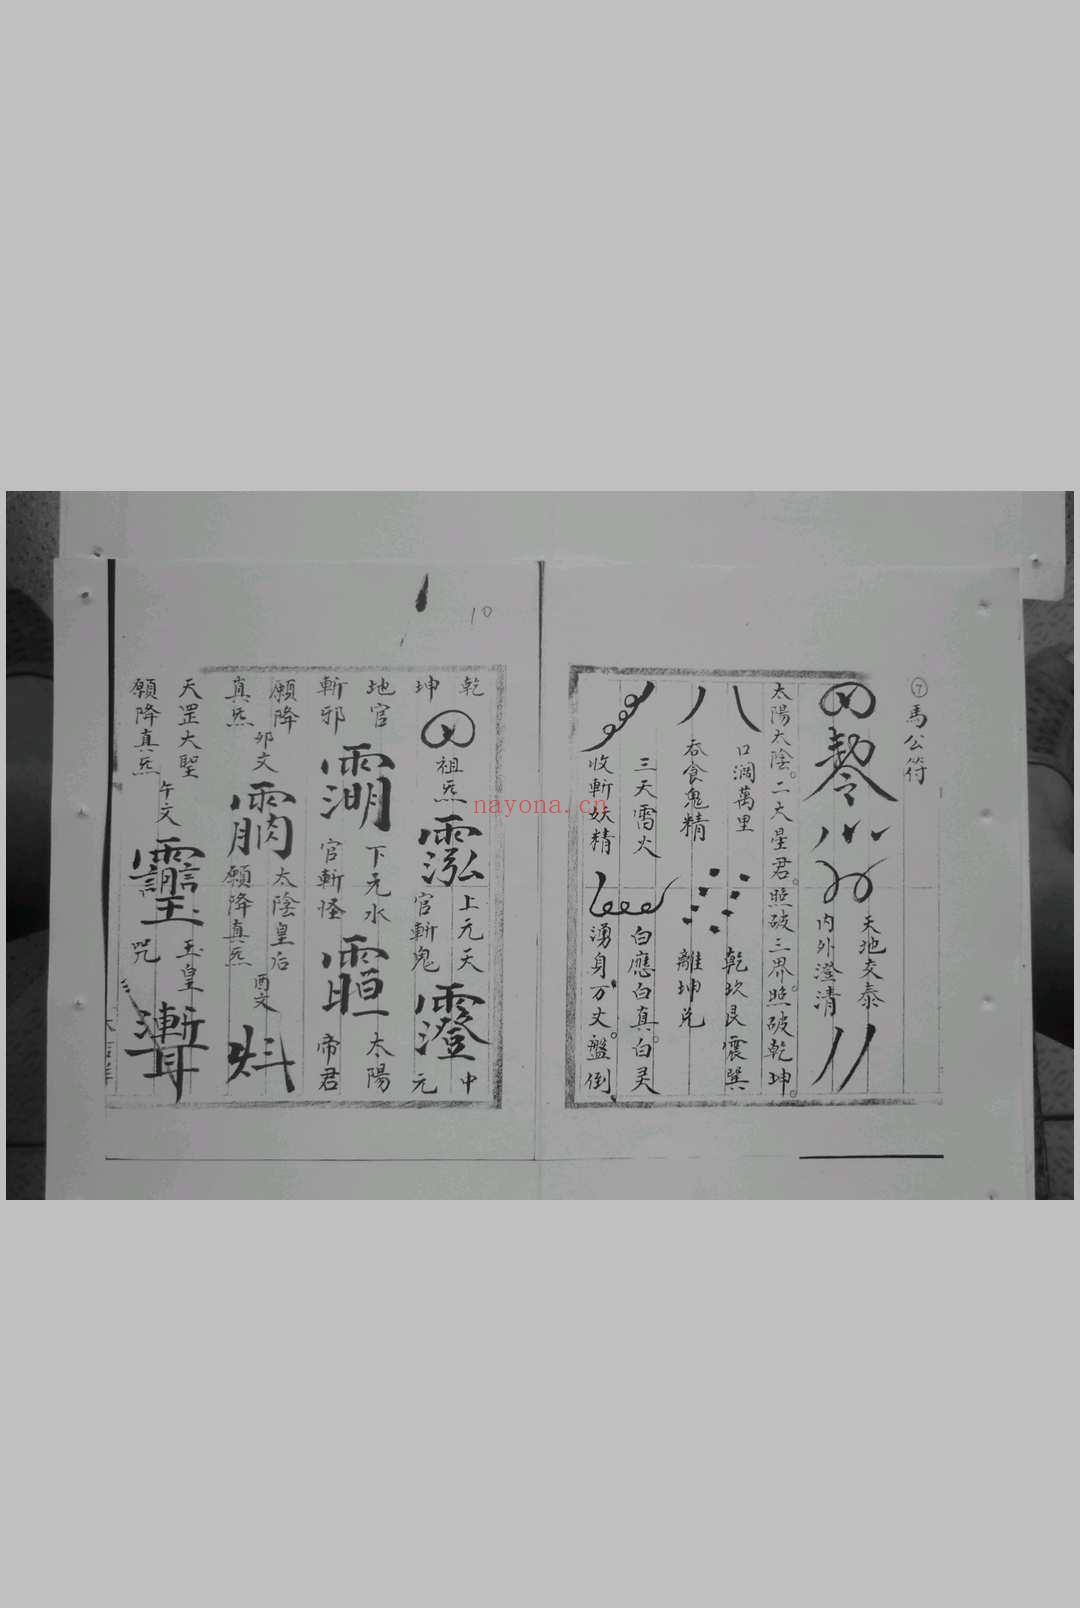 ⑦馬公符
天地交泰
內外澄清
太陽太陰。二大星君。照破三界。照破乾坤。
口濶萬里
吞食鬼精
乾坎艮震巽
離坤兌
三天雷火
收斬妖精
白應白真。白灵
湧身万丈。盤倒
10
乾
坤
祖炁
上元天
官斬鬼
中
元
地官
斬邪
下元水
官斬怪
太陽
帝君
願降
真炁
卯文
太陰皇后
願降真炁
酉文
天罡大聖
願降真炁
午文
玉皇
咒
nayona.cn